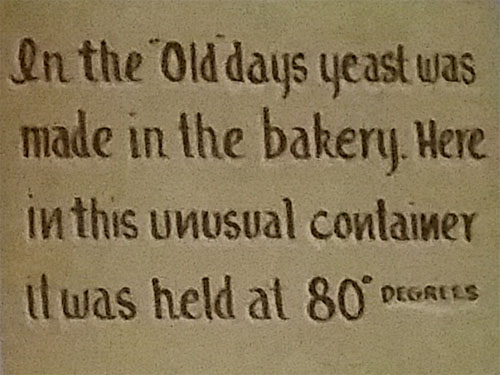 In the "Old" days yeast was
made in the bakery. Here
in this unusual container
it was held at 80° DEGREES